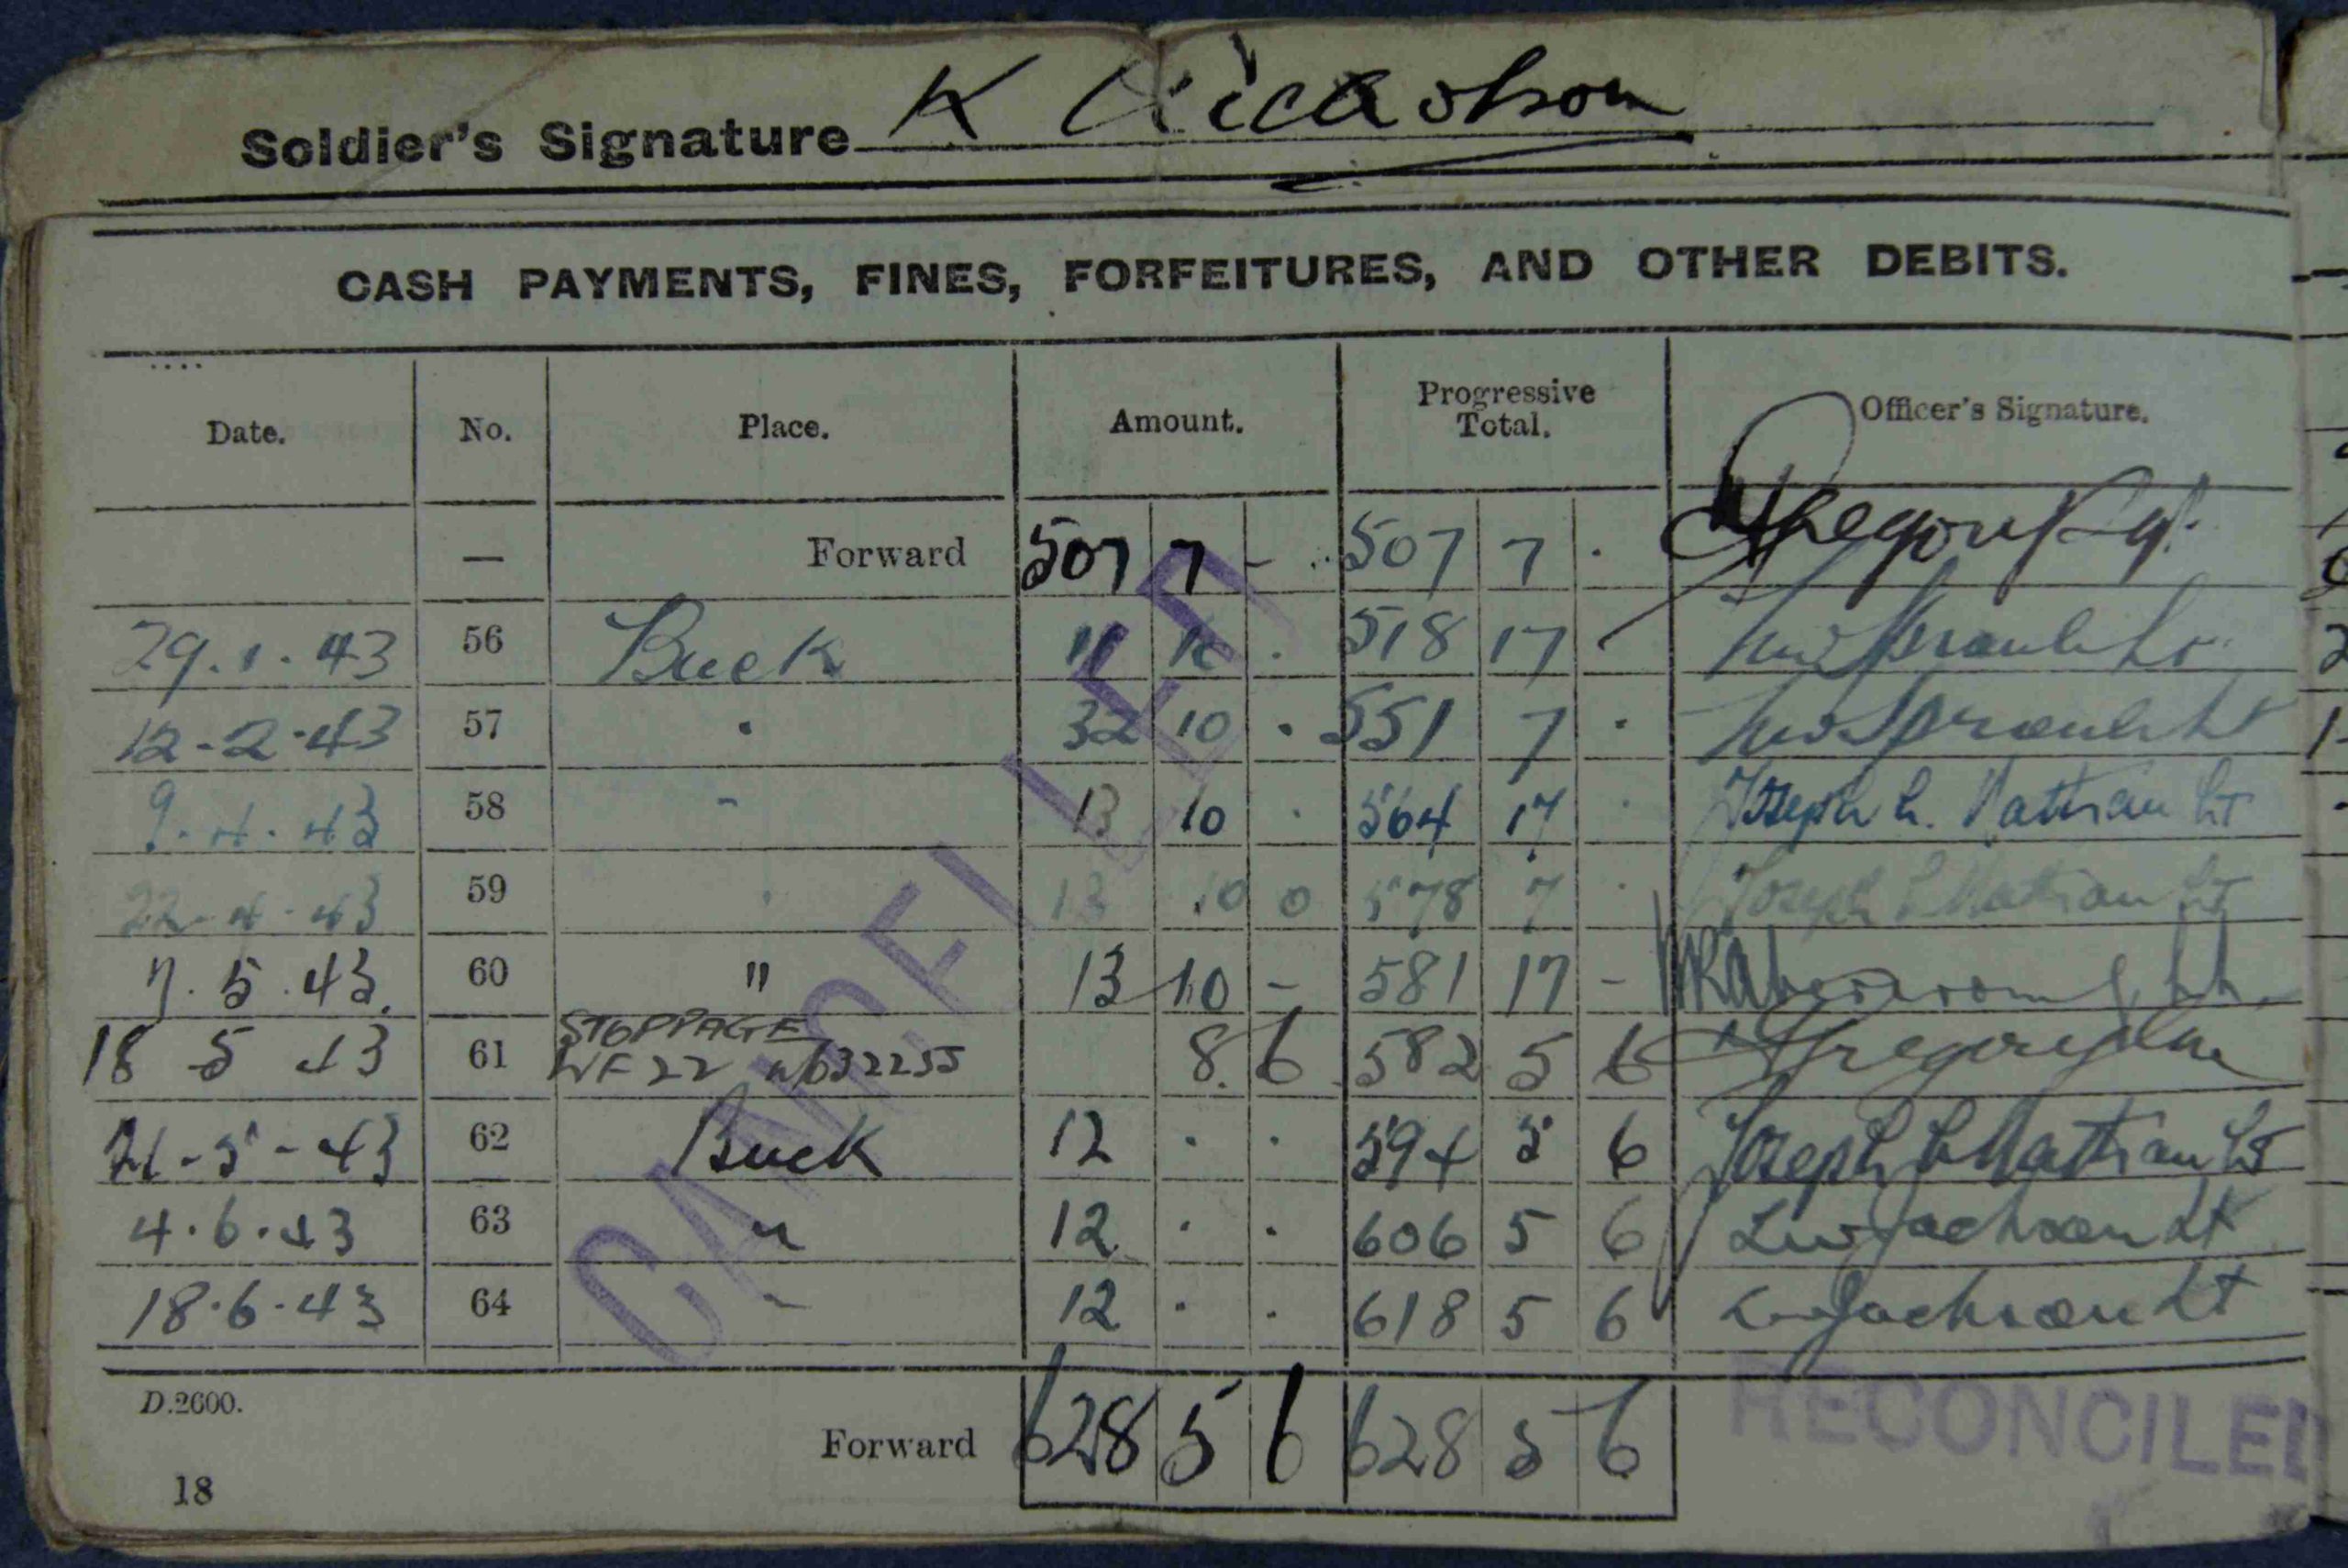 Soldier's Signature K Nickolson
CASH PAYMENTS, FINES, FORFEITURES, AND OTHER DEBITS.
Date. No. Place. Amount. Progressive Total. Officer's Signature.
— Forward 507 7 - 507 7 .
29.1.43 56 Buck 11 10 . 518 17
12-2-43 57 " 32 10 . 551 7 .
9.4.43 58 " 13 10 . 564 17 . Joseph L. Lt
22-4-43 59 " 13 10 0 578 7 . Joseph L Lt
7.5.43. 60 " 13 10 - 581 17 -
18 5 43 61 STOPPAGE WF 22 632255 8. 6 582 5 6 Gregory
21-5-43 62 Buck 12 . . 594 5 6 Joseph L Lt
4.6.43 63 " 12 . . 606 5 6 Jackson Lt
18.6.43 64 " 12 . . 618 5 6 Jackson Lt
CANCELLED
D.2600.
Forward 628 5 6 628 5 6
RECONCILED
18